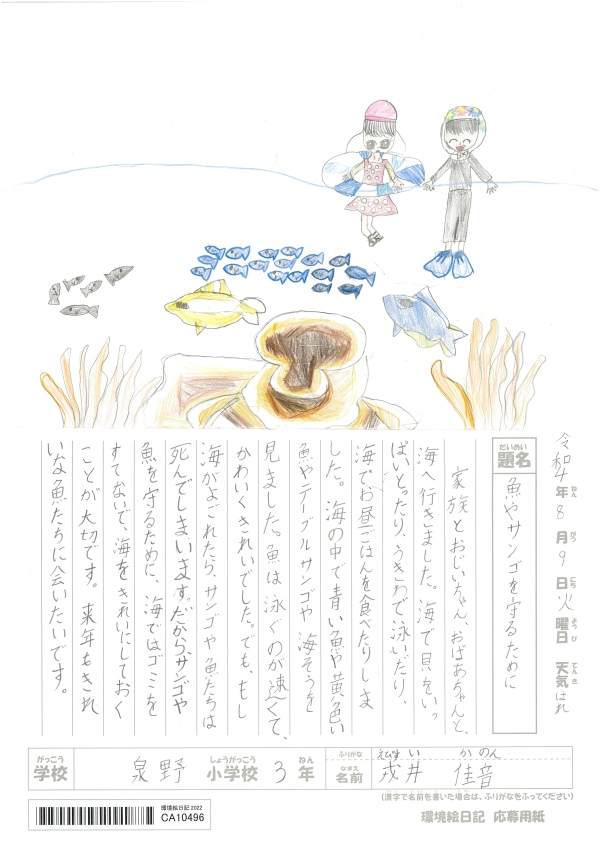 令和4年8月9日火曜日 天気はれ
ねん がつ にち ようび てんき
だいめい
題名
魚やサンゴを守るために
家族とおじいちゃん、おばあちゃんと、
海へ行きました。海で貝をいっ
ぱいとったり、うきわで泳いだり、
海でお昼ごはんを食べたりしま
した。海の中で青い魚や黄色い
魚やテーブルサンゴや海そうを
見ました。魚は泳ぐのが速くて、
かわいくきれいでした。でも、もし
海がよごれたら、サンゴや魚たちは
死んでしまいます。だから、サンゴや
魚を守るために、海ではゴミを
すてないで、海をきれいにしておく
ことが大切です。来年もきれ
いな魚たちに会いたいです。
がっこう しょうがっこう ねん ふりがな えびす い か のん
学校 泉野 小学校 3年 なまえ 名前 戎井 佳音
(漢字で名前を書いた場合は、ふりがなをふってください)
環境絵日記 2022
CA10496
環境絵日記 応募用紙